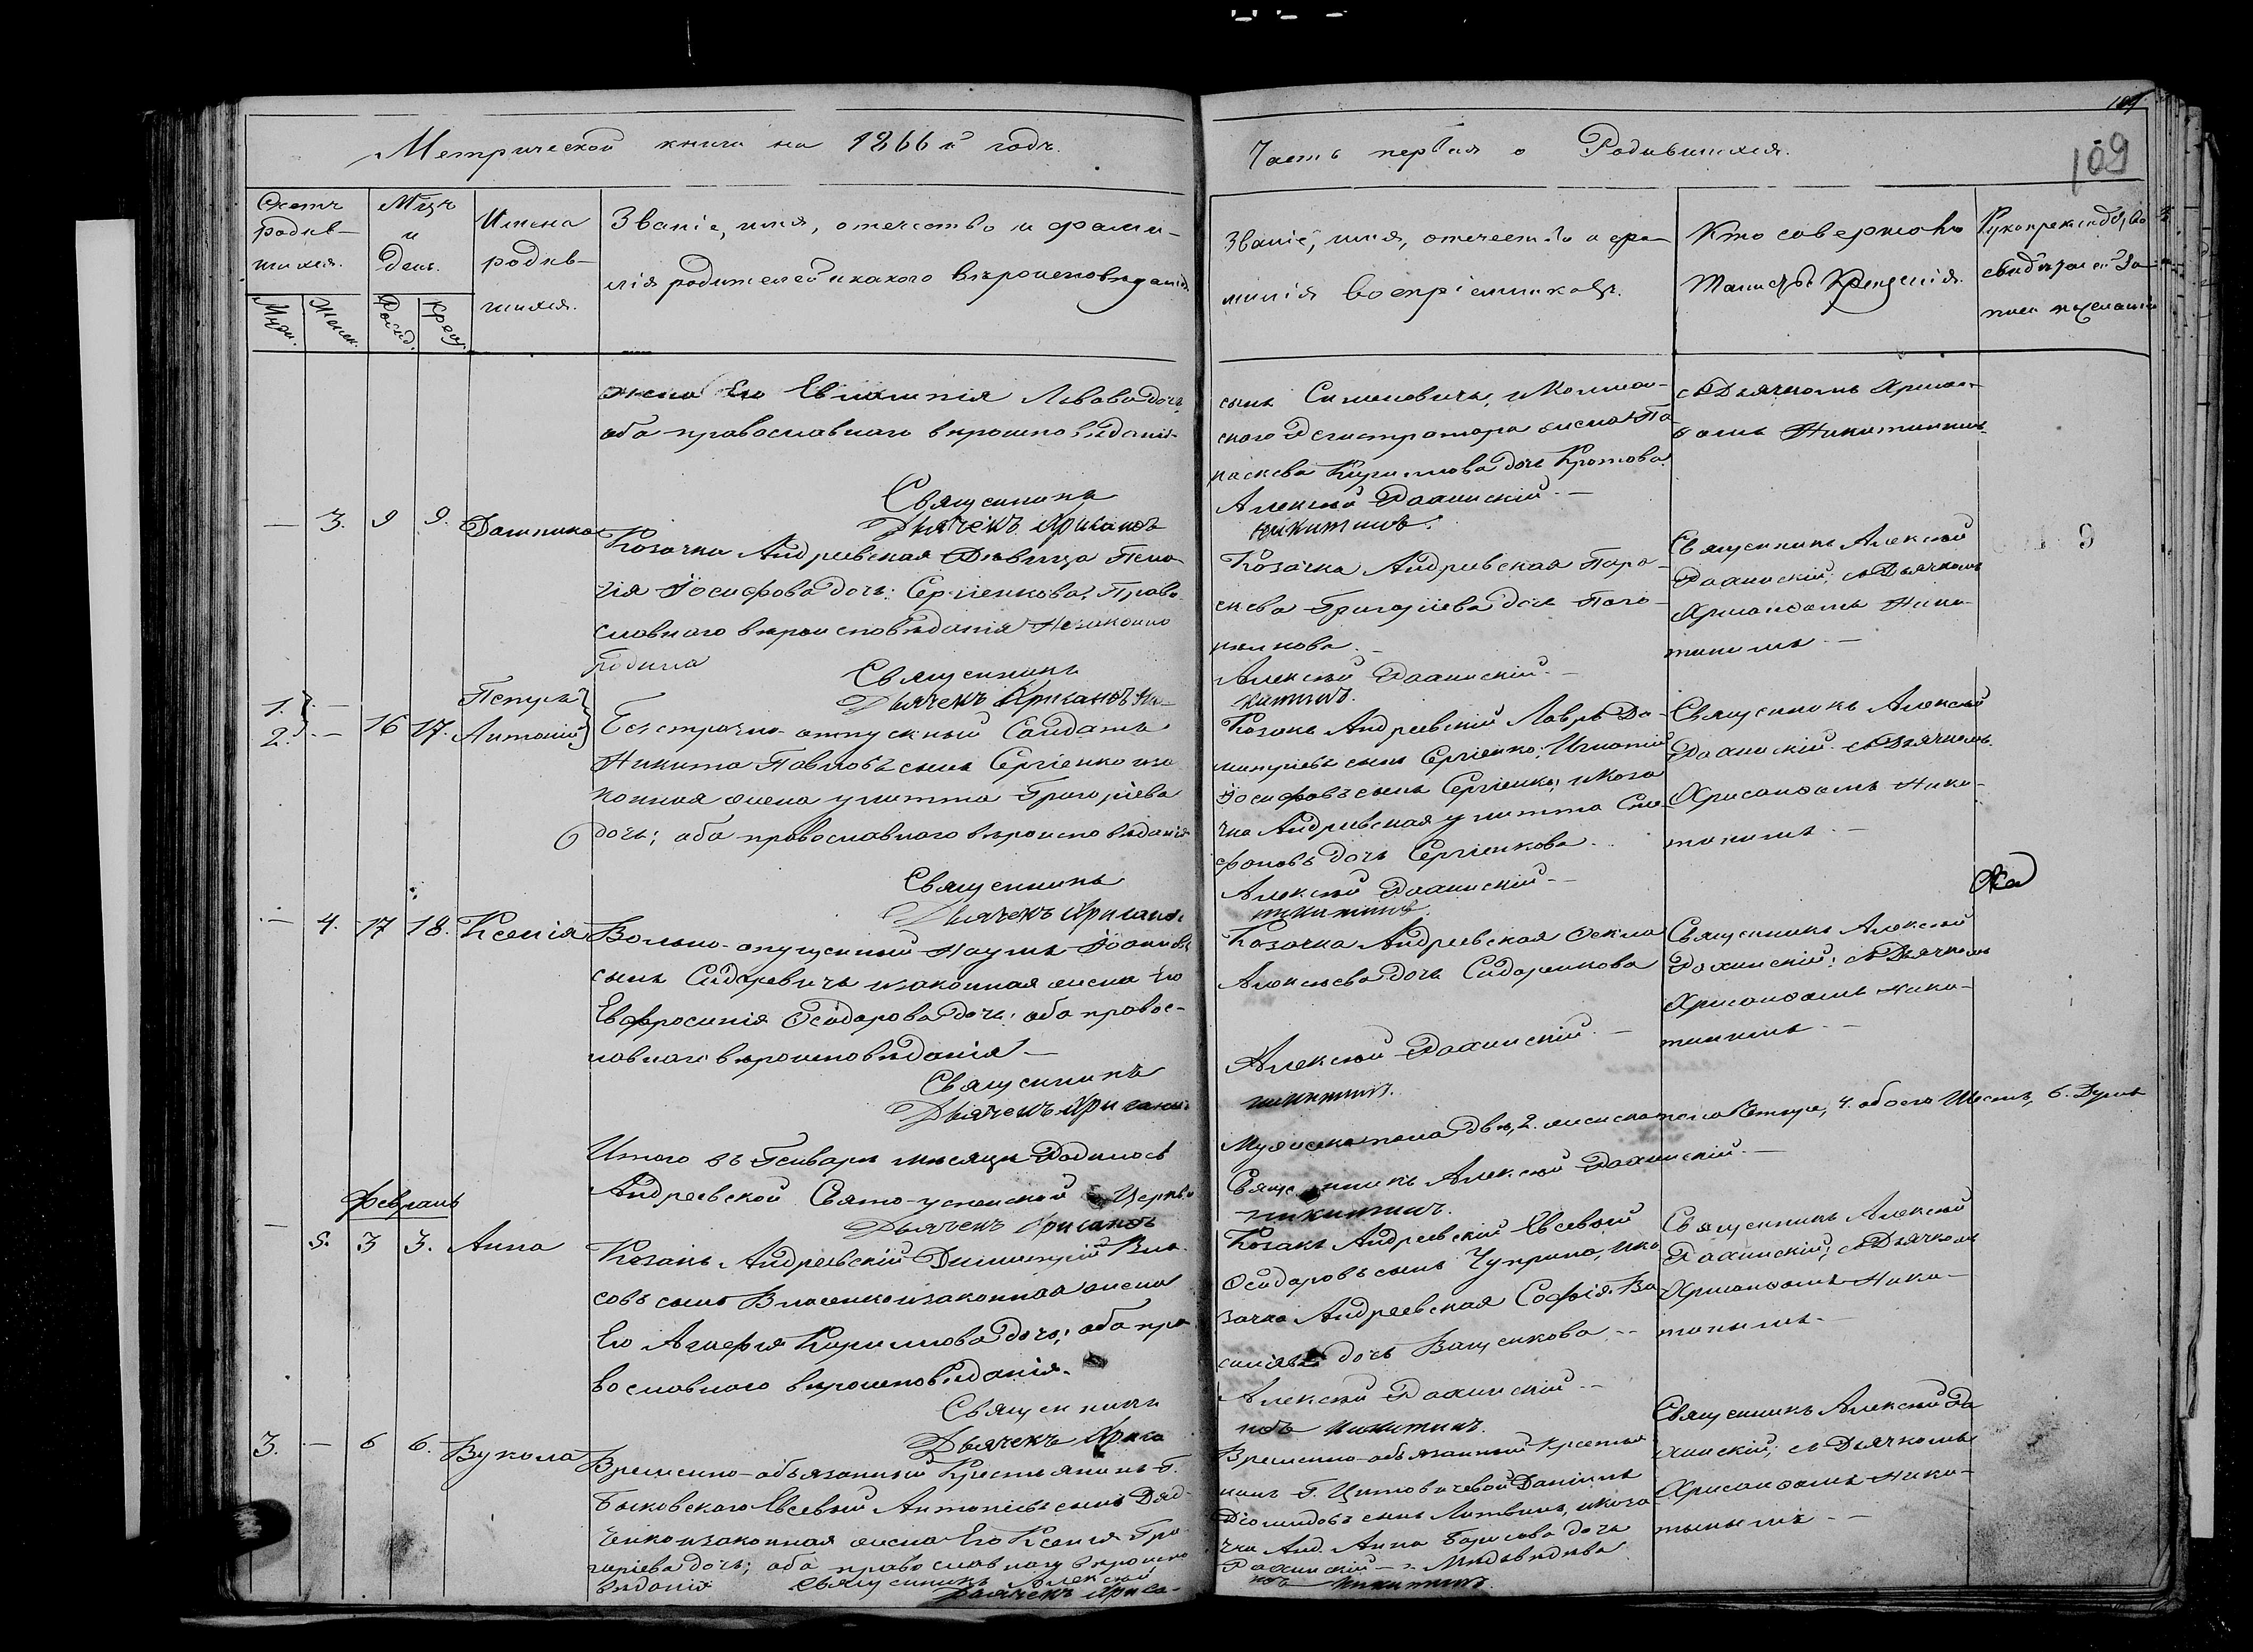 109
109
Метрической книги на 1866й годъ.
Часть первая о Родившихся.
Счетъ родив-
шихся.
Муж.
Женск.
Мцъ
и
День.
Рожд.
Крещ.
Имена
родив-
шихся.
Званіе, имя, отечество и фами-
лія родителей и какого вѣроисповѣданія
Званіе, имя, отечество и фа-
милія воспріемниковъ.
Кто совершалъ
Таинство Крещенія.
жена Его Евлампія Львова дочь
оба православнаго вѣроисповѣданія
Священникъ
Дьячекъ Хрисанѳъ
сынъ Симоновичъ, и Коллеж-
скаго Регистратора жена Па-
раскева Кирилова дочь Кротова.
Алексій Рахинскій. —
Никитинъ.
съ Дьячкомъ Хриса-
номъ Никитинымъ
— 3. 9 9.
Козачка Андреевская Дѣвица Пела-
гія Іосифова дочь: Сергіенкова, Право-
славнаго вѣроисповѣданія Незаконно
родила
Священникъ
Дьячекъ Хрисанѳъ Ни-
Козачка Андреевская Пара-
скева Григоріева дочь
Алексій Рахинскій. —
китинъ.
Священникъ Алексій
Рахинскій; съ Дьячкомъ
Хрисанѳомъ Ники-
тинымъ —
1. —
2. — 16 17.
Петръ
Антоній
Безсрочно-отпускный Солдатъ
Никита Павловъ сынъ Сергіенко и за-
конная жена Улитта Григоріева
дочь; оба православнаго вѣроисповѣданія
Священникъ
Дьячекъ Хрисанѳъ
Козакъ Андреевскій Лавръ Ди-
митріевъ сынъ Сергіенко, Игнатій
Іосифовъ сынъ Сергіенко, и Коза-
чка Андреевская Улитта
дочь Сергіенкова.
Алексій Рахинскій. —
Никитинъ.
Священникъ Алексій
Рахинскій съ Дьячкомъ
Хрисанѳомъ Ники-
тинымъ —
— 4. 17 18. Ксенія
Вольно-отпущенный Наумъ Іоанновъ
сынъ Сидаревичъ и законная жена Его
Евфросинія Ѳеодорова дочь: оба правос-
лавнаго вѣроисповѣданія —
Священникъ
Дьячекъ Хрисанѳъ
Козачка Андреевская Ѳекла
Алексѣева дочь Сидаренкова
Алексій Рахинскій. —
Никитинъ.
Священникъ Алексій
Рахинскій; съ Дьячкомъ
Хрисанѳомъ Ники-
тинымъ —
Итого въ Генварѣ мѣсяцѣ Родилось
Мужеска пола два, 2. женска пола Четыре, 4. обоего Шесть, 6. Душъ
Андреевской Свято-успенской Церкви
Священникъ Алексій Рахинскій. —
Дьячекъ Хрисанѳъ
Никитинъ.
Февраль
— 5. 3 3. Анна
Козакъ Андреевскій Димитрій Вла-
совъ сынъ Власенко и законная жена
Его Агафія Кирилова дочь; оба пра-
вославнаго вѣроисповѣданія.
Священникъ
Дьячекъ Хриса
Козакъ Андреевскій Евсевій
Ѳеодоровъ сынъ Чуприна, и ко-
зачка Андреевская Софія Ва-
силіева дочь Ващенкова —
Алексій Рахинскій —
нѳъ Никитинъ.
Священникъ Алексій
Рахинскій; съ Дьячкомъ
Хрисанѳомъ Ники-
тинымъ —
3. — 6 6. Вукола
Временно-обязанный Крестьянинъ Г.
Быковскаго Евсевій Антоніевъ сынъ Дяд-
ченко и законная жена Его Ксенія Гри-
горіева дочь; оба православнаго вѣроиспо-
вѣданія Священникъ Алексій
Дьячекъ Хриса-
Временно-обязанный Крестья-
нинъ Г. Цитовичевой Даніилъ
Діомидовъ сынъ Литвинъ, и коза-
чка Анд. Анна Борисова дочь
Рахинскій — Медвидкова
нѳъ Никитинъ.
Священникъ Алексій Ра-
хинскій; съ Дьячкомъ
Хрисанѳомъ Ники-
тинымъ —